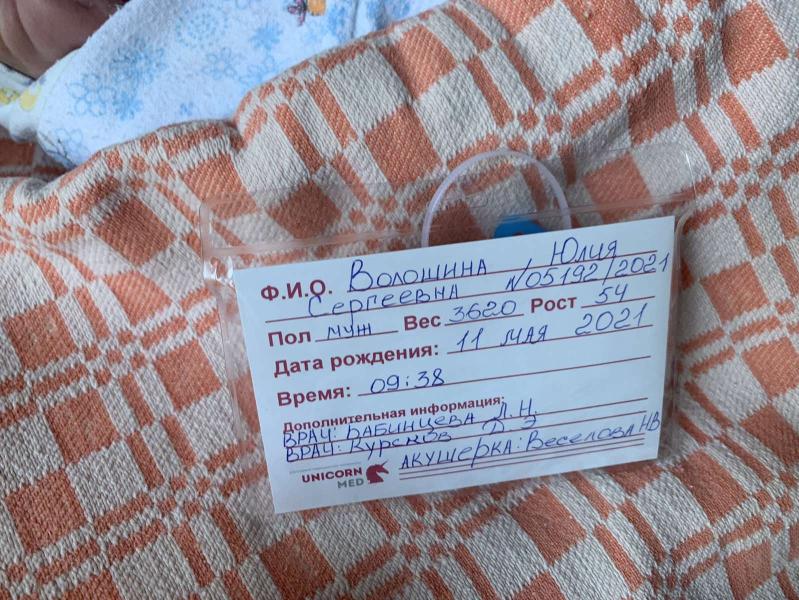 Ф.И.О. Волошина Юлия
Сергеевна №05192/2021
Пол муж Вес 3620 Рост 54
Дата рождения: 11 мая 2021
Время: 09:38
Дополнительная информация:
ВРАЧ: БАБИНЦЕВА Л.Н.
ВРАЧ: КУРСКОВ Д.Э.
АКУШЕРКА: Веселова НВ
UNICORN
MED